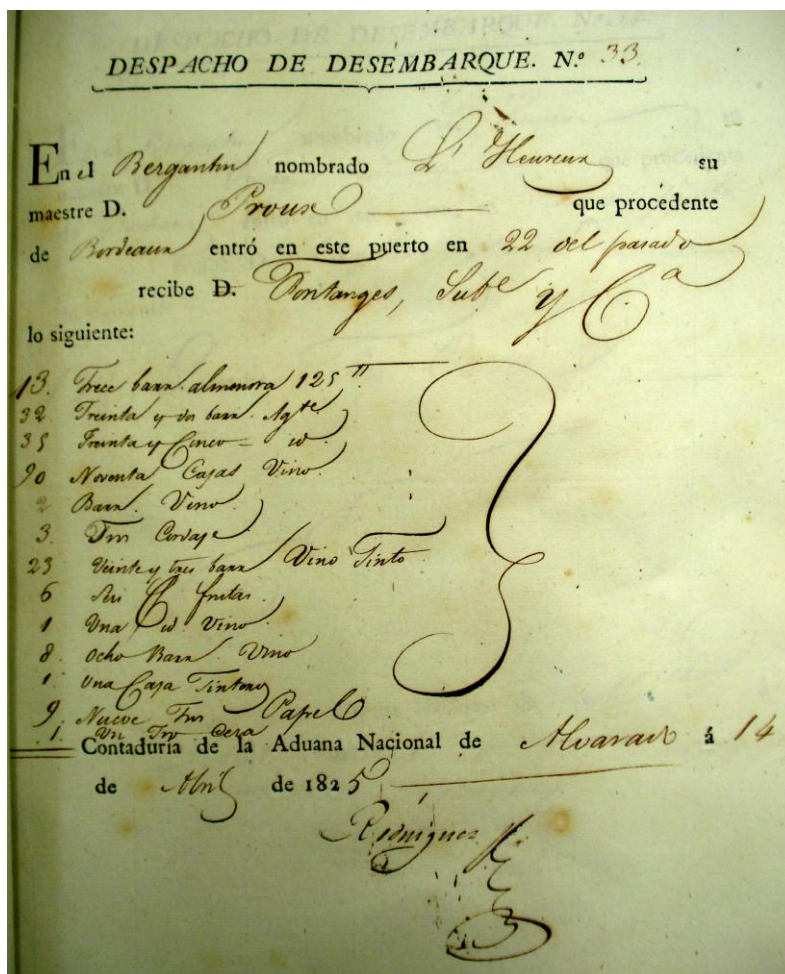 DESPACHO DE DESEMBARQUE. N.º 33
En el Bergantin nombrado L'Heureux su
maestre D. Proux que procedente
de Bordeaux entró en este puerto en 22 del pasado
recibe D. Fontanges, Sube y C.a
lo siguiente:
13. Trece barr. almendra 125
32 Treinta y dos barr. Agte
35 Treinta y Cinco = id.
90 Noventa Cajas Vino
2 Barr. Vino.
3. Tros Cordaje
23 Veinte y tres barr Vino Tinto
6 Seis C frutas.
1 Una id. Vino.
8. Ocho Barr. Vino
1. Una Caja
9. Nueve Tros Papel
1. Un Tro
Contaduría de la Aduana Nacional de Alvarado á 14
de Abril de 1825
Rodriguez